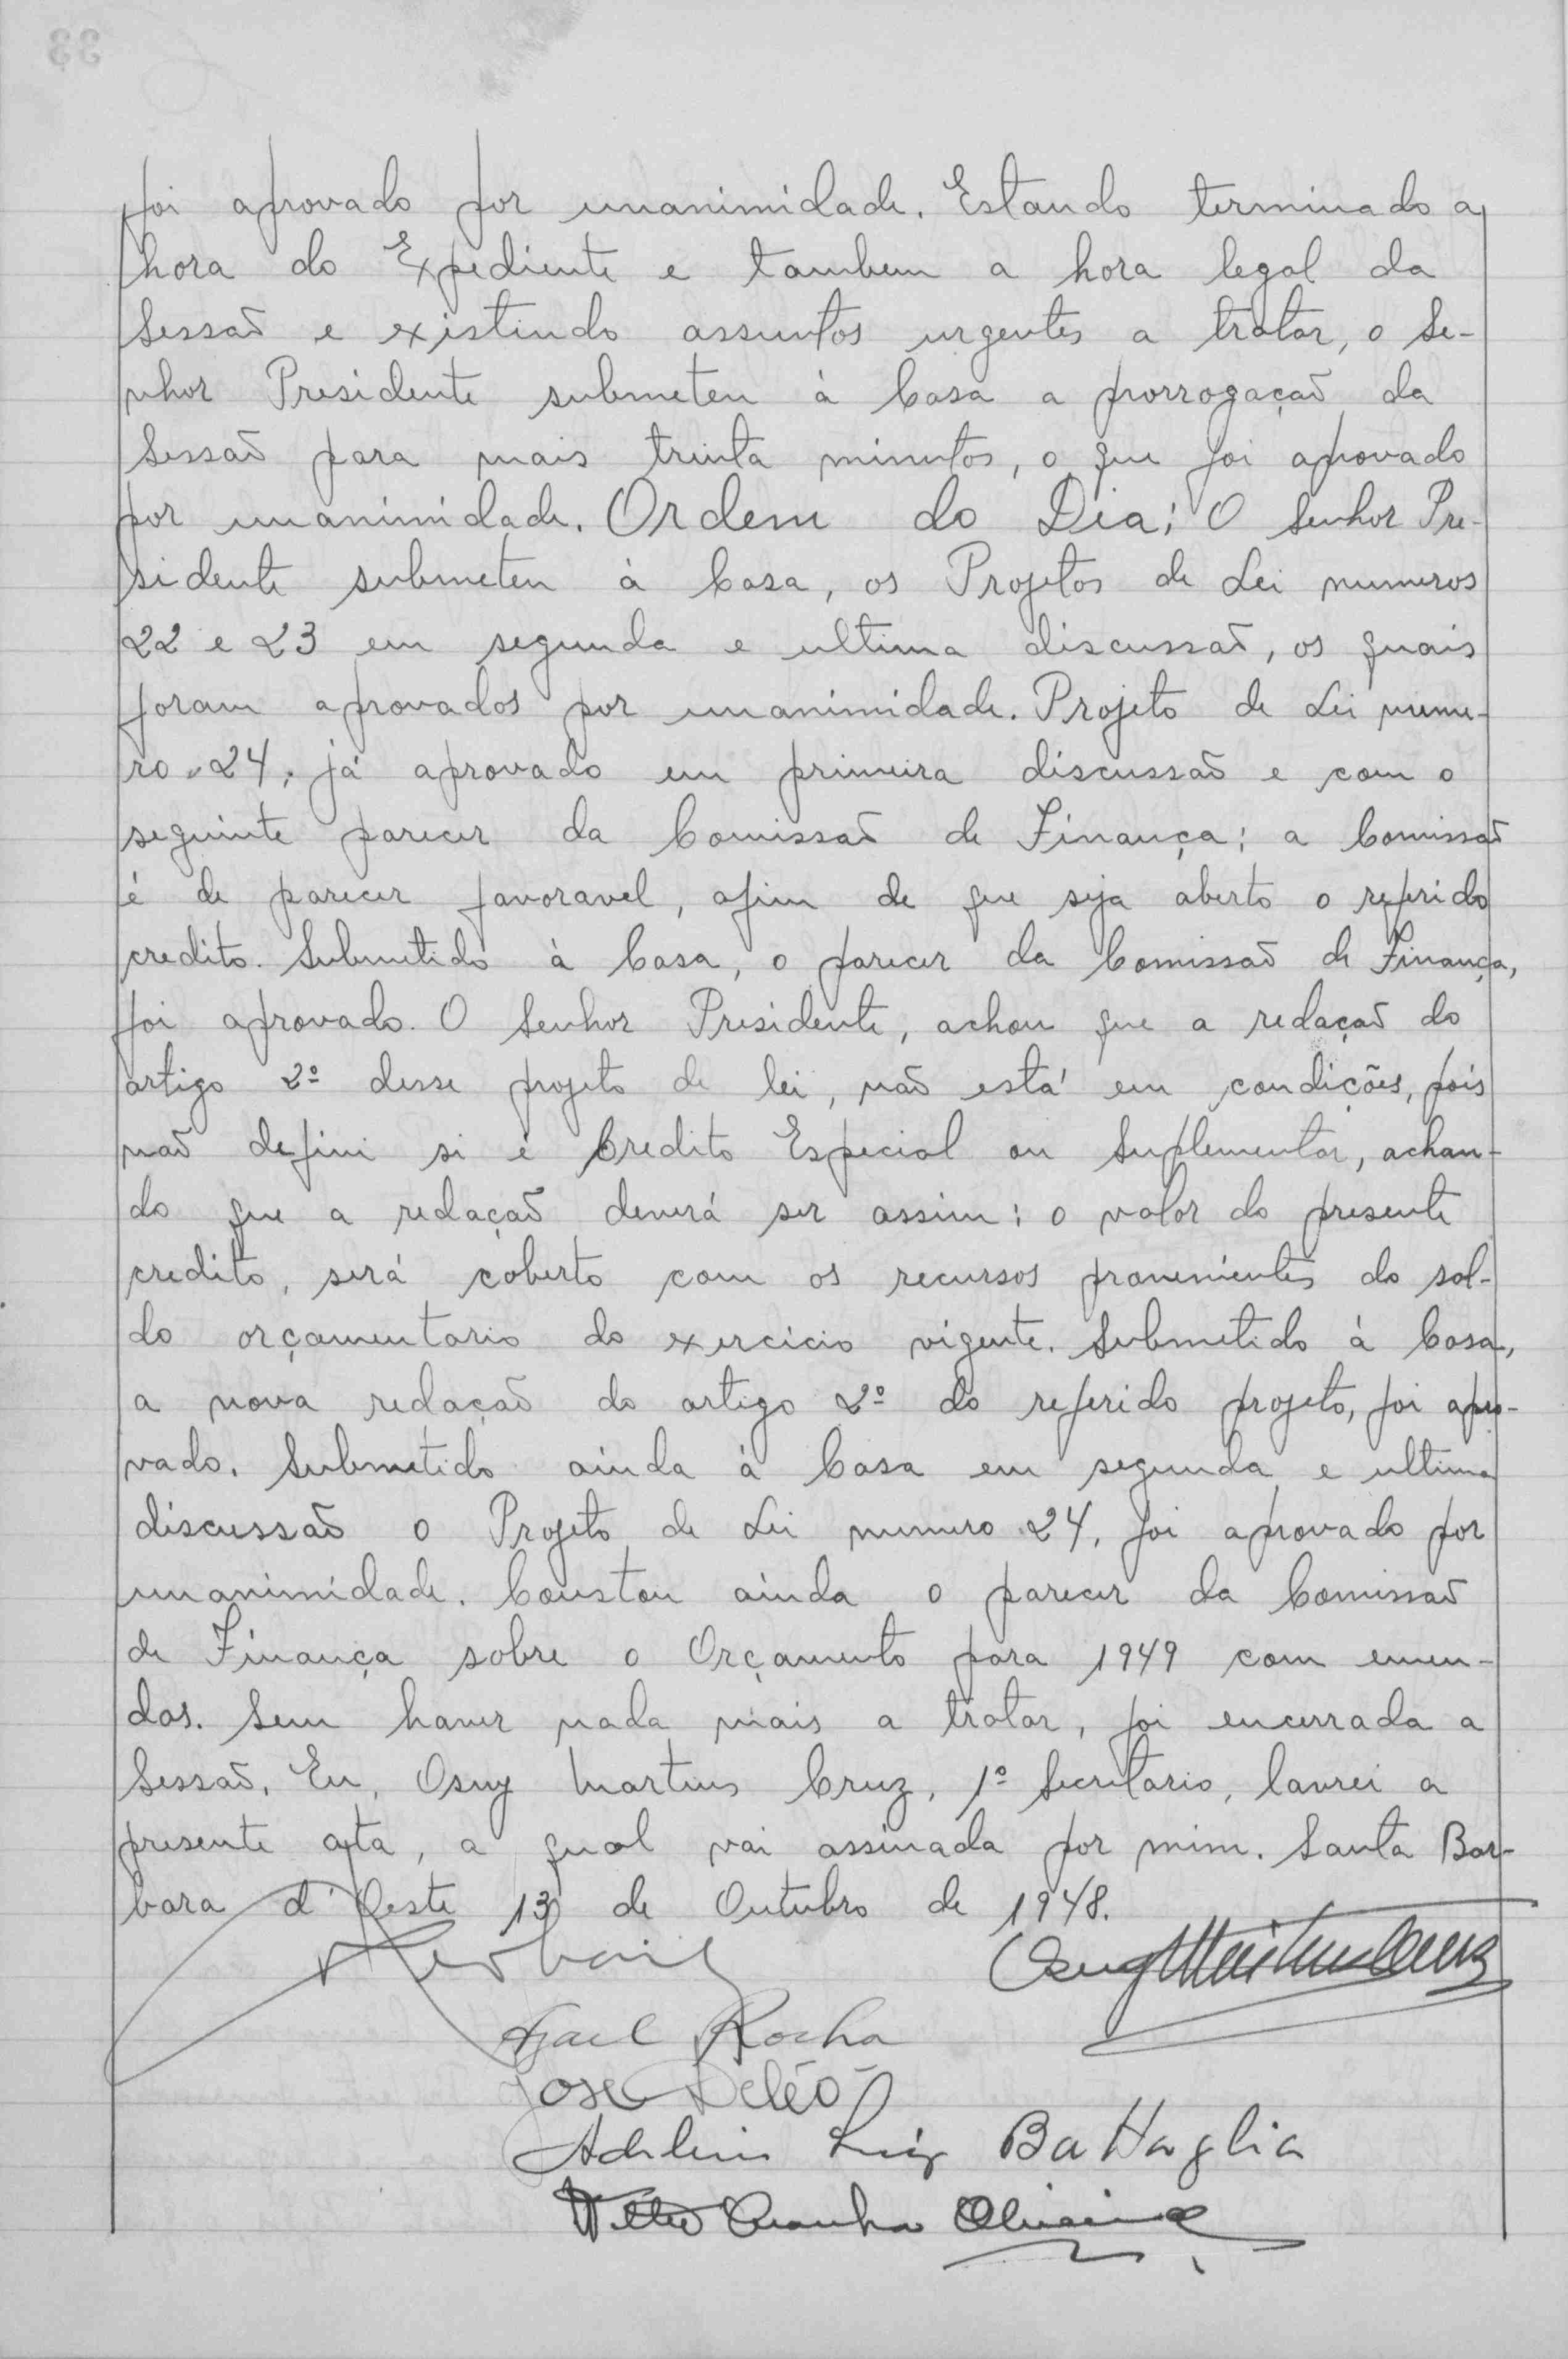 foi aprovado por unanimidade. Estando terminado a
hora do Expediente e tambem a hora legal da
Sessão e existindo assuntos urgentes a tratar, o Se-
nhor Presidente submeteu à Casa a prorrogação da
Sessão para mais trinta minutos, o que foi aprovado
por unanimidade. Ordem do Dia: O Senhor Pre-
sidente submeteu à Casa, os Projetos de Lei numeros
22 e 23 em segunda e ultima discussão, os quais
foram aprovados por unanimidade. Projeto de Lei nume-
ro 24, já aprovado em primeira discussão e com o
seguinte parecer da Comissão de Finança: a Comissão
é de parecer favoravel, afim de que seja aberto o referido
credito. Submetido à Casa, o parecer da Comissão de Finança,
foi aprovado. O Senhor Presidente, achou que a redação do
artigo 2º desse projeto de lei, não está em condições, pois
não defini si é Credito Especial ou Suplementar, achan-
do que a redação deverá ser assim: o valor do presente
credito, será coberto com os recursos provenientes do sal-
do orçamentario do exercicio vigente. Submetido à Casa,
a nova redação do artigo 2º do referido projeto, foi apro-
vado. Submetido ainda à Casa em segunda e ultima
discussão o Projeto de Lei numero 24, foi aprovado por
unanimidade. Constou ainda o parecer da Comissão
de Finança sobre o Orçamento para 1949 com emen-
das. Sem haver nada mais a tratar, foi encerrada a
Sessão. Eu, Osny Martins Cruz, 1º Secretario, lavrei a
presente ata, a qual vai assinada por mim. Santa Bar-
bara d'Oeste 13 de Outubro de 1948.
Osny Martins Cruz
Rocha
José Deléo
Luiz Battaglia
Oliveira